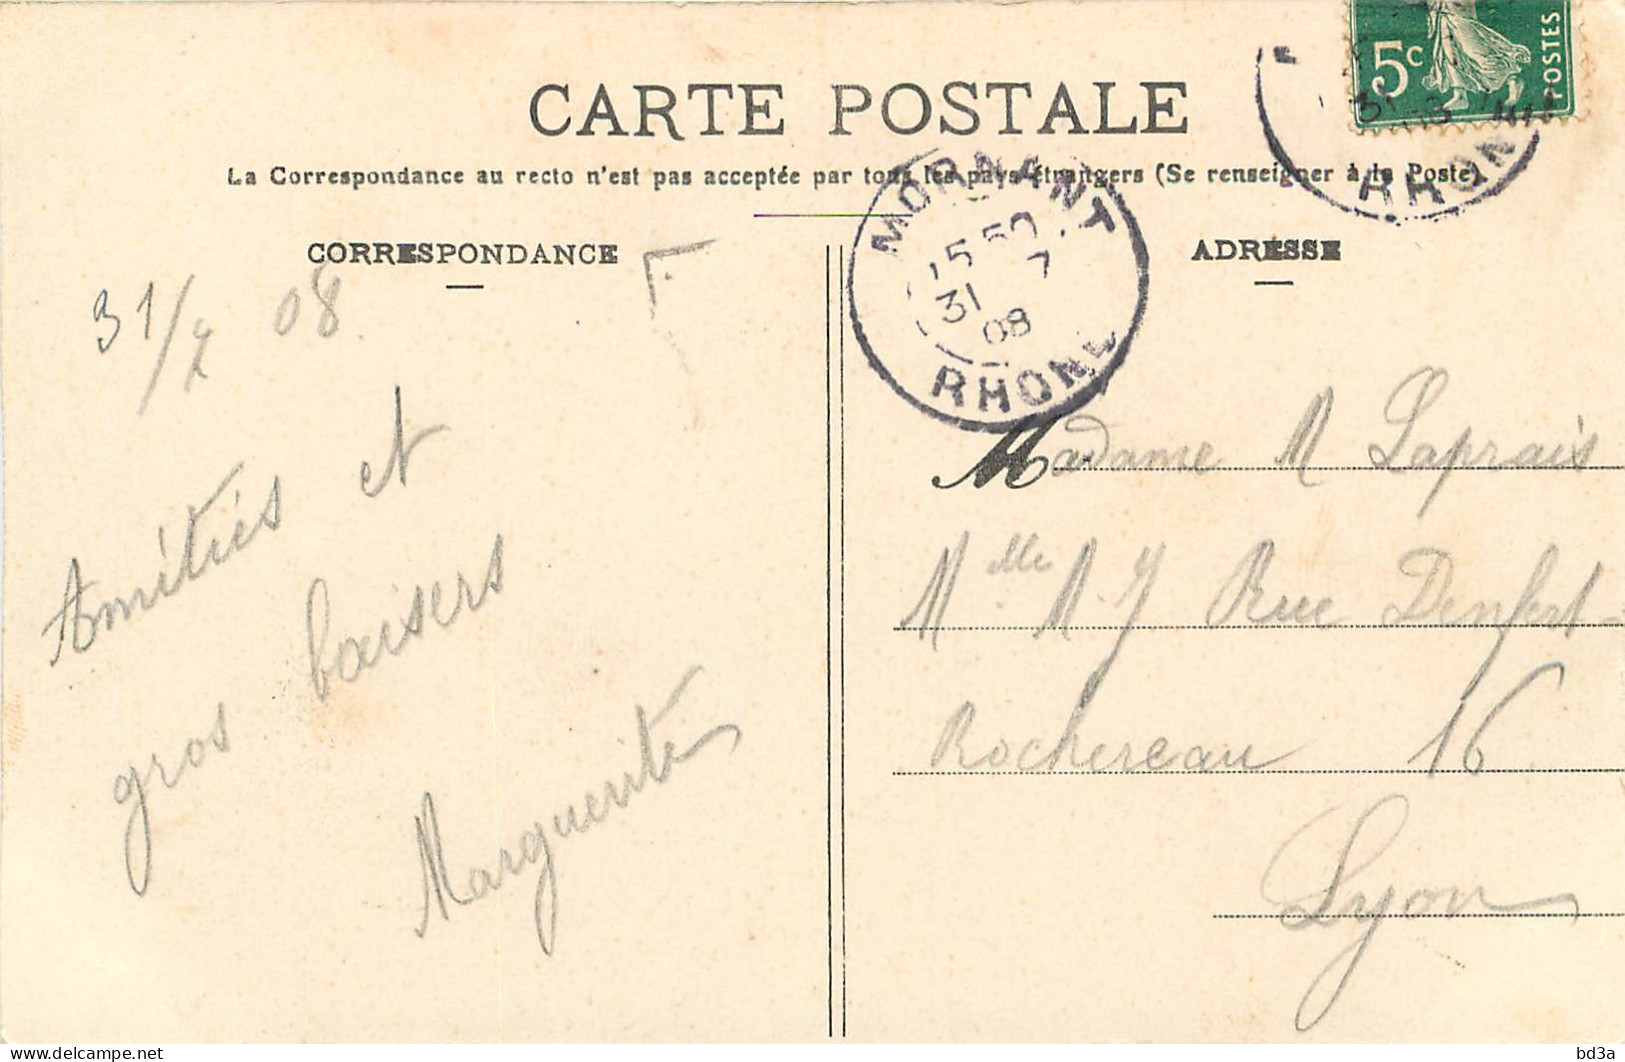 CARTE POSTALE
La Correspondance au recto n'est pas acceptée par tous les pays étrangers (Se renseigner à la Poste)
CORRESPONDANCE
31/7 08
Amitiés et
gros baisers
Marguerite
MORNANT
15 50
31 7
08
RHONE
5c
POSTES
RHONE
ADRESSE
Madame M Laprais
Mlle M. J Rue Denfert-
Rochereau 16
Lyon
delcampe.net
bd3a